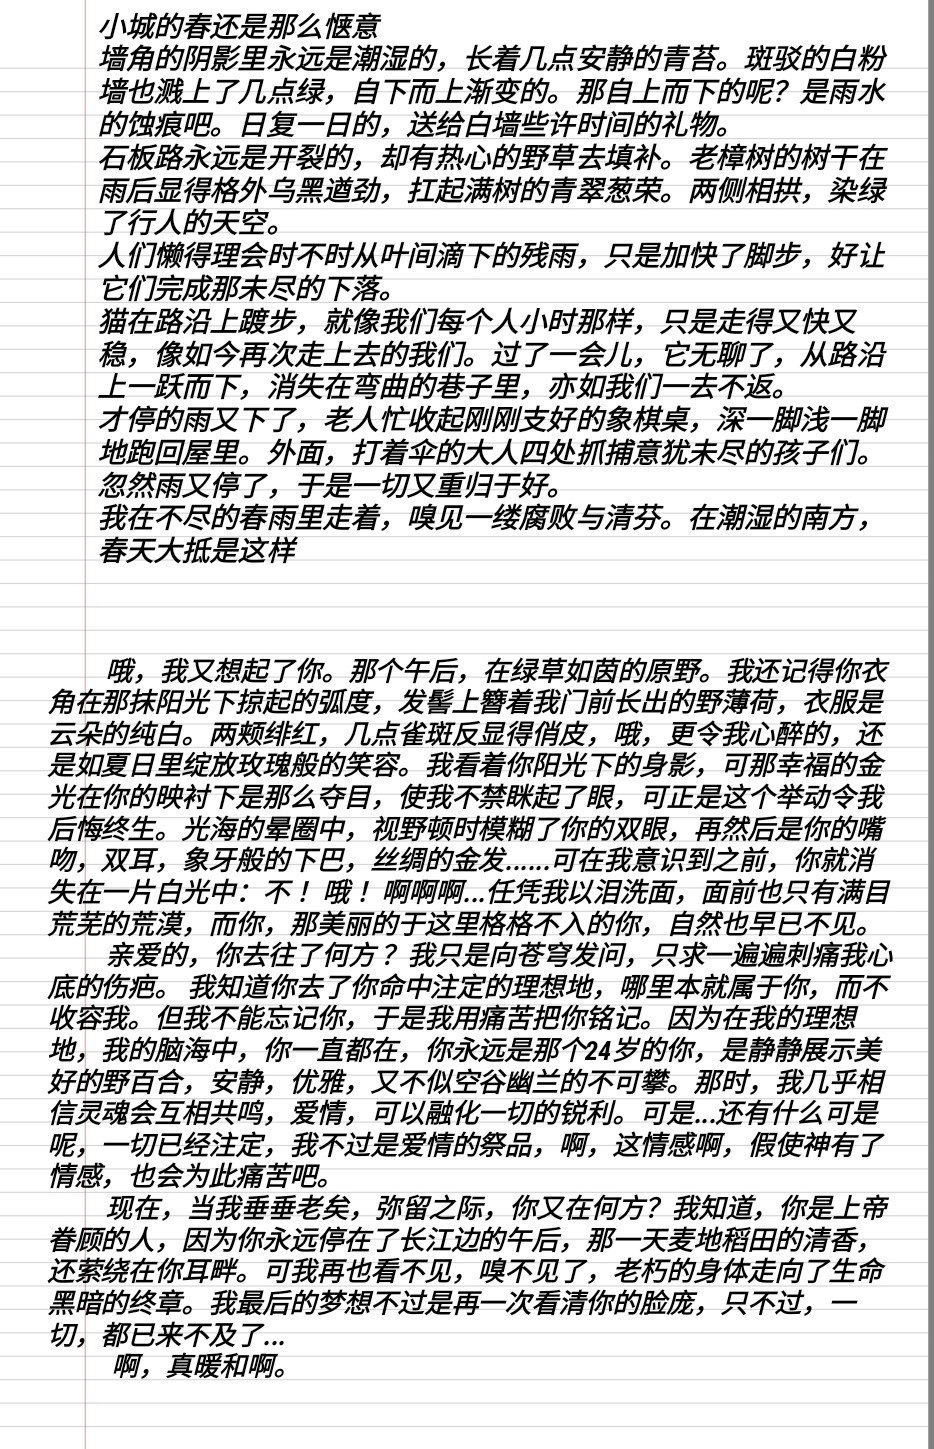 小城的春还是那么惬意
墙角的阴影里永远是潮湿的，长着几点安静的青苔。斑驳的白粉
墙也溅上了几点绿，自下而上渐变的。那自上而下的呢？是雨水
的蚀痕吧。日复一日的，送给白墙些许时间的礼物。
石板路永远是开裂的，却有热心的野草去填补。老樟树的树干在
雨后显得格外乌黑遒劲，扛起满树的青翠葱荣。两侧相拱，染绿
了行人的天空。
人们懒得理会时不时从叶间滴下的残雨，只是加快了脚步，好让
它们完成那未尽的下落。
猫在路沿上踱步，就像我们每个人小时那样，只是走得又快又
稳，像如今再次走上去的我们。过了一会儿，它无聊了，从路沿
上一跃而下，消失在弯曲的巷子里，亦如我们一去不返。
才停的雨又下了，老人忙收起刚刚支好的象棋桌，深一脚浅一脚
地跑回屋里。外面，打着伞的大人四处抓捕意犹未尽的孩子们。
忽然雨又停了，于是一切又重归于好。
我在不尽的春雨里走着，嗅见一缕腐败与清芬。在潮湿的南方，
春天大抵是这样
哦，我又想起了你。那个午后，在绿草如茵的原野。我还记得你衣
角在那抹阳光下掠起的弧度，发髻上簪着我门前长出的野薄荷，衣服是
云朵的纯白。两颊绯红，几点雀斑反显得俏皮，哦，更令我心醉的，还
是如夏日里绽放玫瑰般的笑容。我看着你阳光下的身影，可那幸福的金
光在你的映衬下是那么夺目，使我不禁眯起了眼，可正是这个举动令我
后悔终生。光海的晕圈中，视野顿时模糊了你的双眼，再然后是你的嘴
吻，双耳，象牙般的下巴，丝绸的金发......可在我意识到之前，你就消
失在一片白光中：不！哦！啊啊啊...任凭我以泪洗面，面前也只有满目
荒芜的荒漠，而你，那美丽的于这里格格不入的你，自然也早已不见。
亲爱的，你去往了何方？我只是向苍穹发问，只求一遍遍刺痛我心
底的伤疤。 我知道你去了你命中注定的理想地，哪里本就属于你，而不
收容我。但我不能忘记你，于是我用痛苦把你铭记。因为在我的理想
地，我的脑海中，你一直都在，你永远是那个24岁的你，是静静展示美
好的野百合，安静，优雅，又不似空谷幽兰的不可攀。那时，我几乎相
信灵魂会互相共鸣，爱情，可以融化一切的锐利。可是...还有什么可是
呢，一切已经注定，我不过是爱情的祭品，啊，这情感啊，假使神有了
情感，也会为此痛苦吧。
现在，当我垂垂老矣，弥留之际，你又在何方？我知道，你是上帝
眷顾的人，因为你永远停在了长江边的午后，那一天麦地稻田的清香，
还萦绕在你耳畔。可我再也看不见，嗅不见了，老朽的身体走向了生命
黑暗的终章。我最后的梦想不过是再一次看清你的脸庞，只不过，一
切，都已来不及了...
啊，真暖和啊。